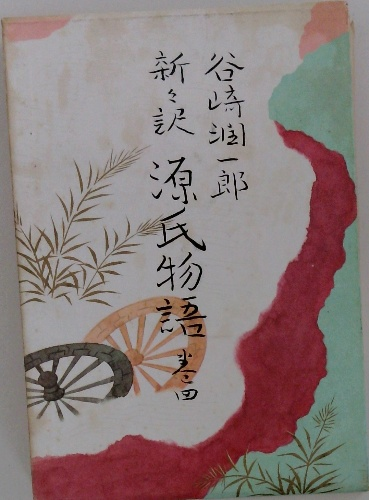 谷崎潤一郎
新々訳
源氏物語 巻四